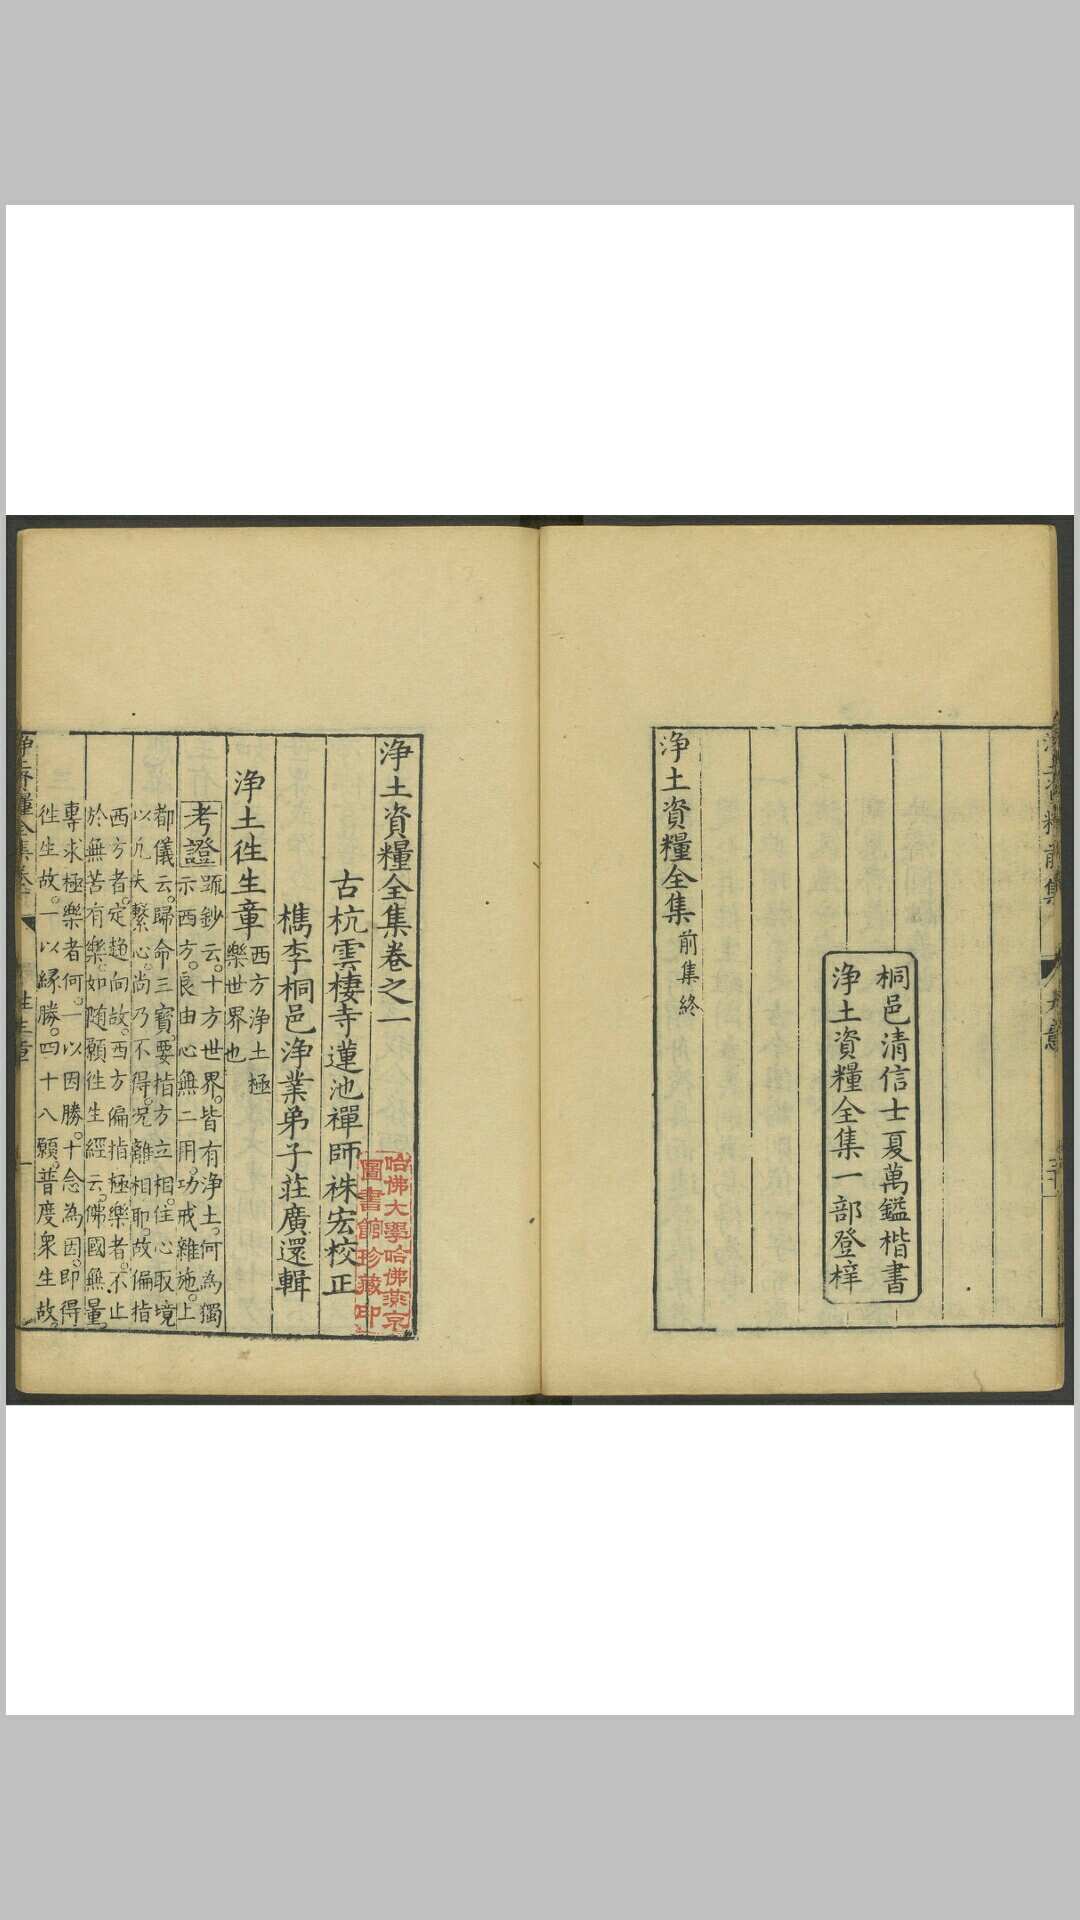 桐邑清信士夏萬鎰楷書
淨土資糧全集一部登梓
淨土資糧全集前集終
淨土資糧全集卷之一
古杭雲棲寺蓮池禪師袾宏校正
檇李桐邑淨業弟子莊廣還輯
淨土徃生章西方淨土極
樂世界也
考證
䟽鈔云。十方世界。皆有淨土。何為獨
示西方。良由心無二用。功戒雜施。上
都儀云。歸命三寶。要指方立相。住心取境
以凢夫繫心。尚乃不得。况離相耶。故偏指
西方者。定趣向故。西方偏指極樂者。不止
於無苦有樂。如随願徃生經云。佛國無量。
專求極樂者何。一以因勝。十念為因。即得
徃生故。一以緣勝。四十八願。普度衆生故。
哈佛大學哈佛燕京
圖書館珍藏印